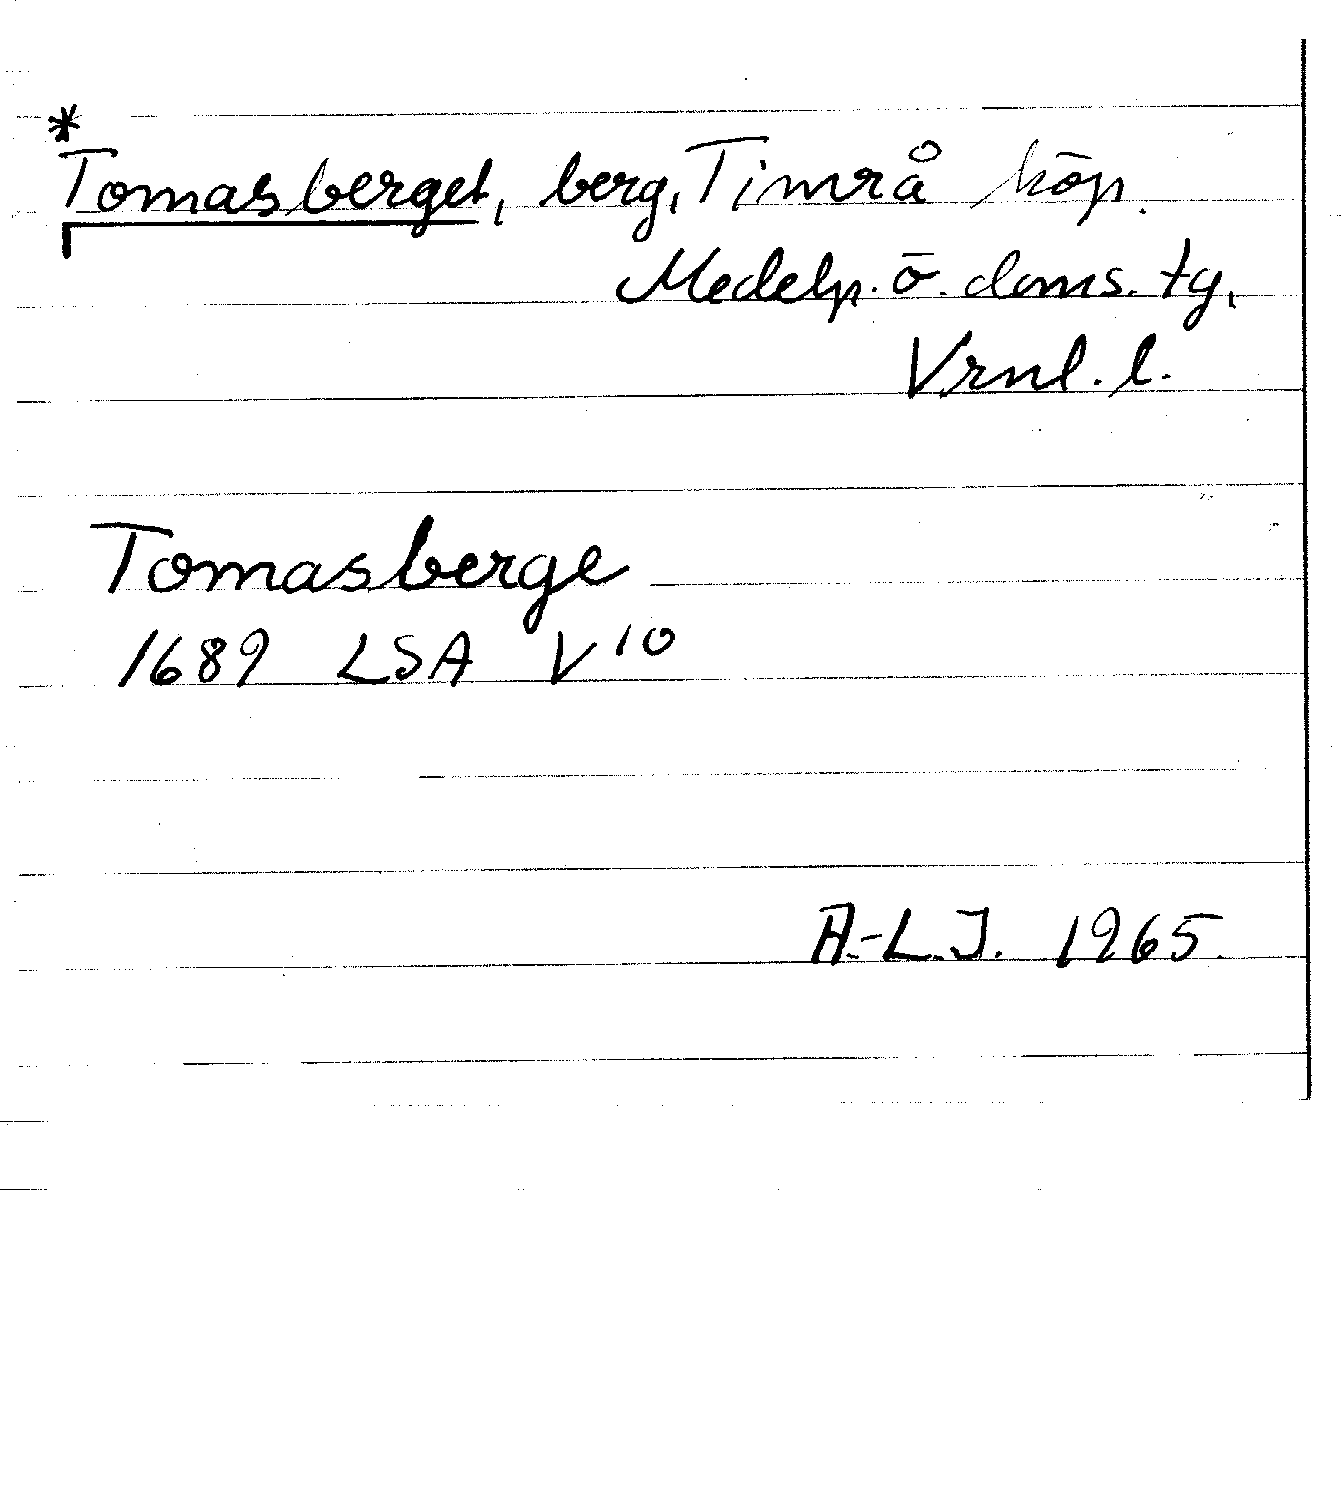 *
Tomasberget, berg, Timrå köp.
Medelp. ö. doms. tg,
Vrnl. l.
Tomasberge
1689 LSA V 10
A.-L.J. 1965.